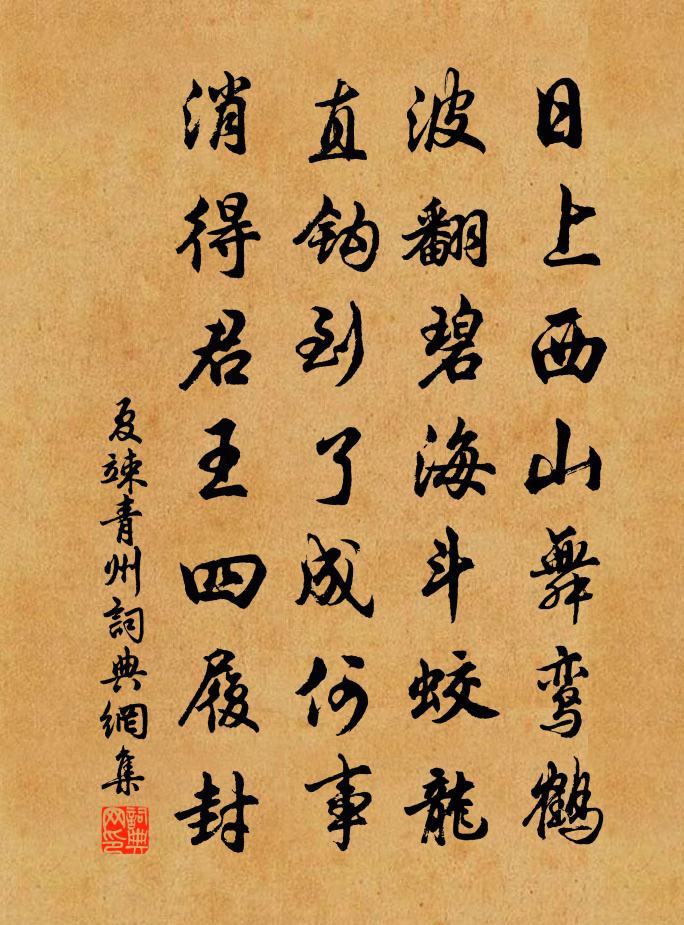 日上西山舞鸾鹤
波翻碧海斗蛟龍
直鈎到了成何事
消得君王四履封
夏竦青州詞典網集
詞典網印